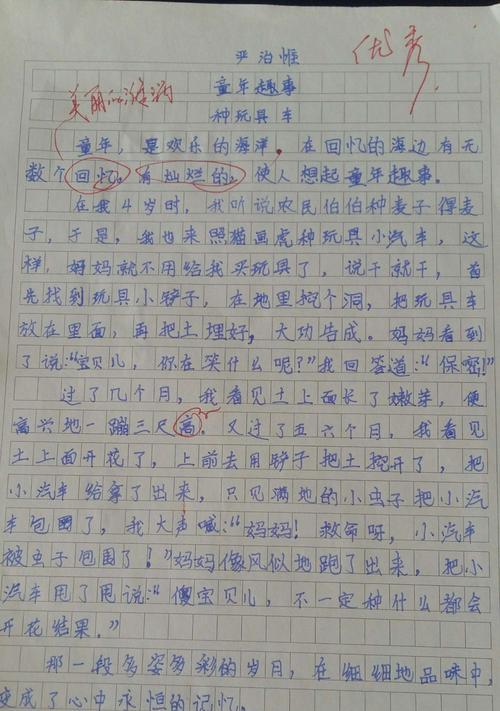 严治惟
优秀
童年趣事
美丽的浪花
种玩具车
童年，是欢乐的海洋。在回忆的海边有无
数个回忆。有灿烂的，使人想起童年趣事。
在我4岁时，我听说农民伯伯种麦子得麦
子，于是，我也来照猫画虎种玩具小汽车，这
样，妈妈就不用给我买玩具了，说干就干，首
先找到玩具小铲子，在地里挖个洞，把玩具车
放在里面，再把土埋好，大功告成。妈妈看到
了说：“宝贝儿，你在笑什么呢？”我回答道：“保密！”
过了几个月，我看见土上面长了嫩芽，便
高兴地一蹦三尺高。又过了五六个月，我看见
土上面开花了，上前去用铲子把土挖开了，把
小汽车给拿了出来，只见满地的小虫子把小汽
车包围了，我大声喊：“妈妈！救命呀，小汽车
被虫子包围了！”妈妈像风似地跑了出来，把小
汽车甩了甩说：“傻宝贝儿，不一定种什么都会
开花结果。”
那一段多姿多彩的岁月，在细细地品味中，
变成了心中永恒的记忆。